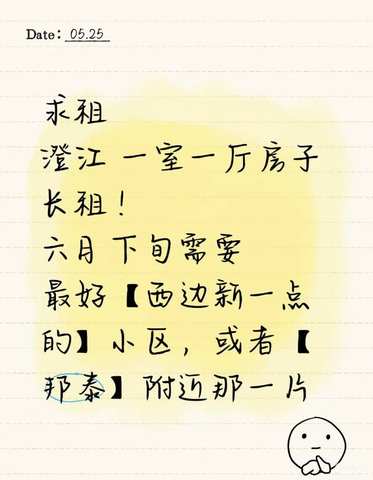 Date: 05.25
求租
澄江 一室一厅房子
长租！
六月下旬需要
最好【西边新一点
的】小区，或者【
邦泰】附近那一片